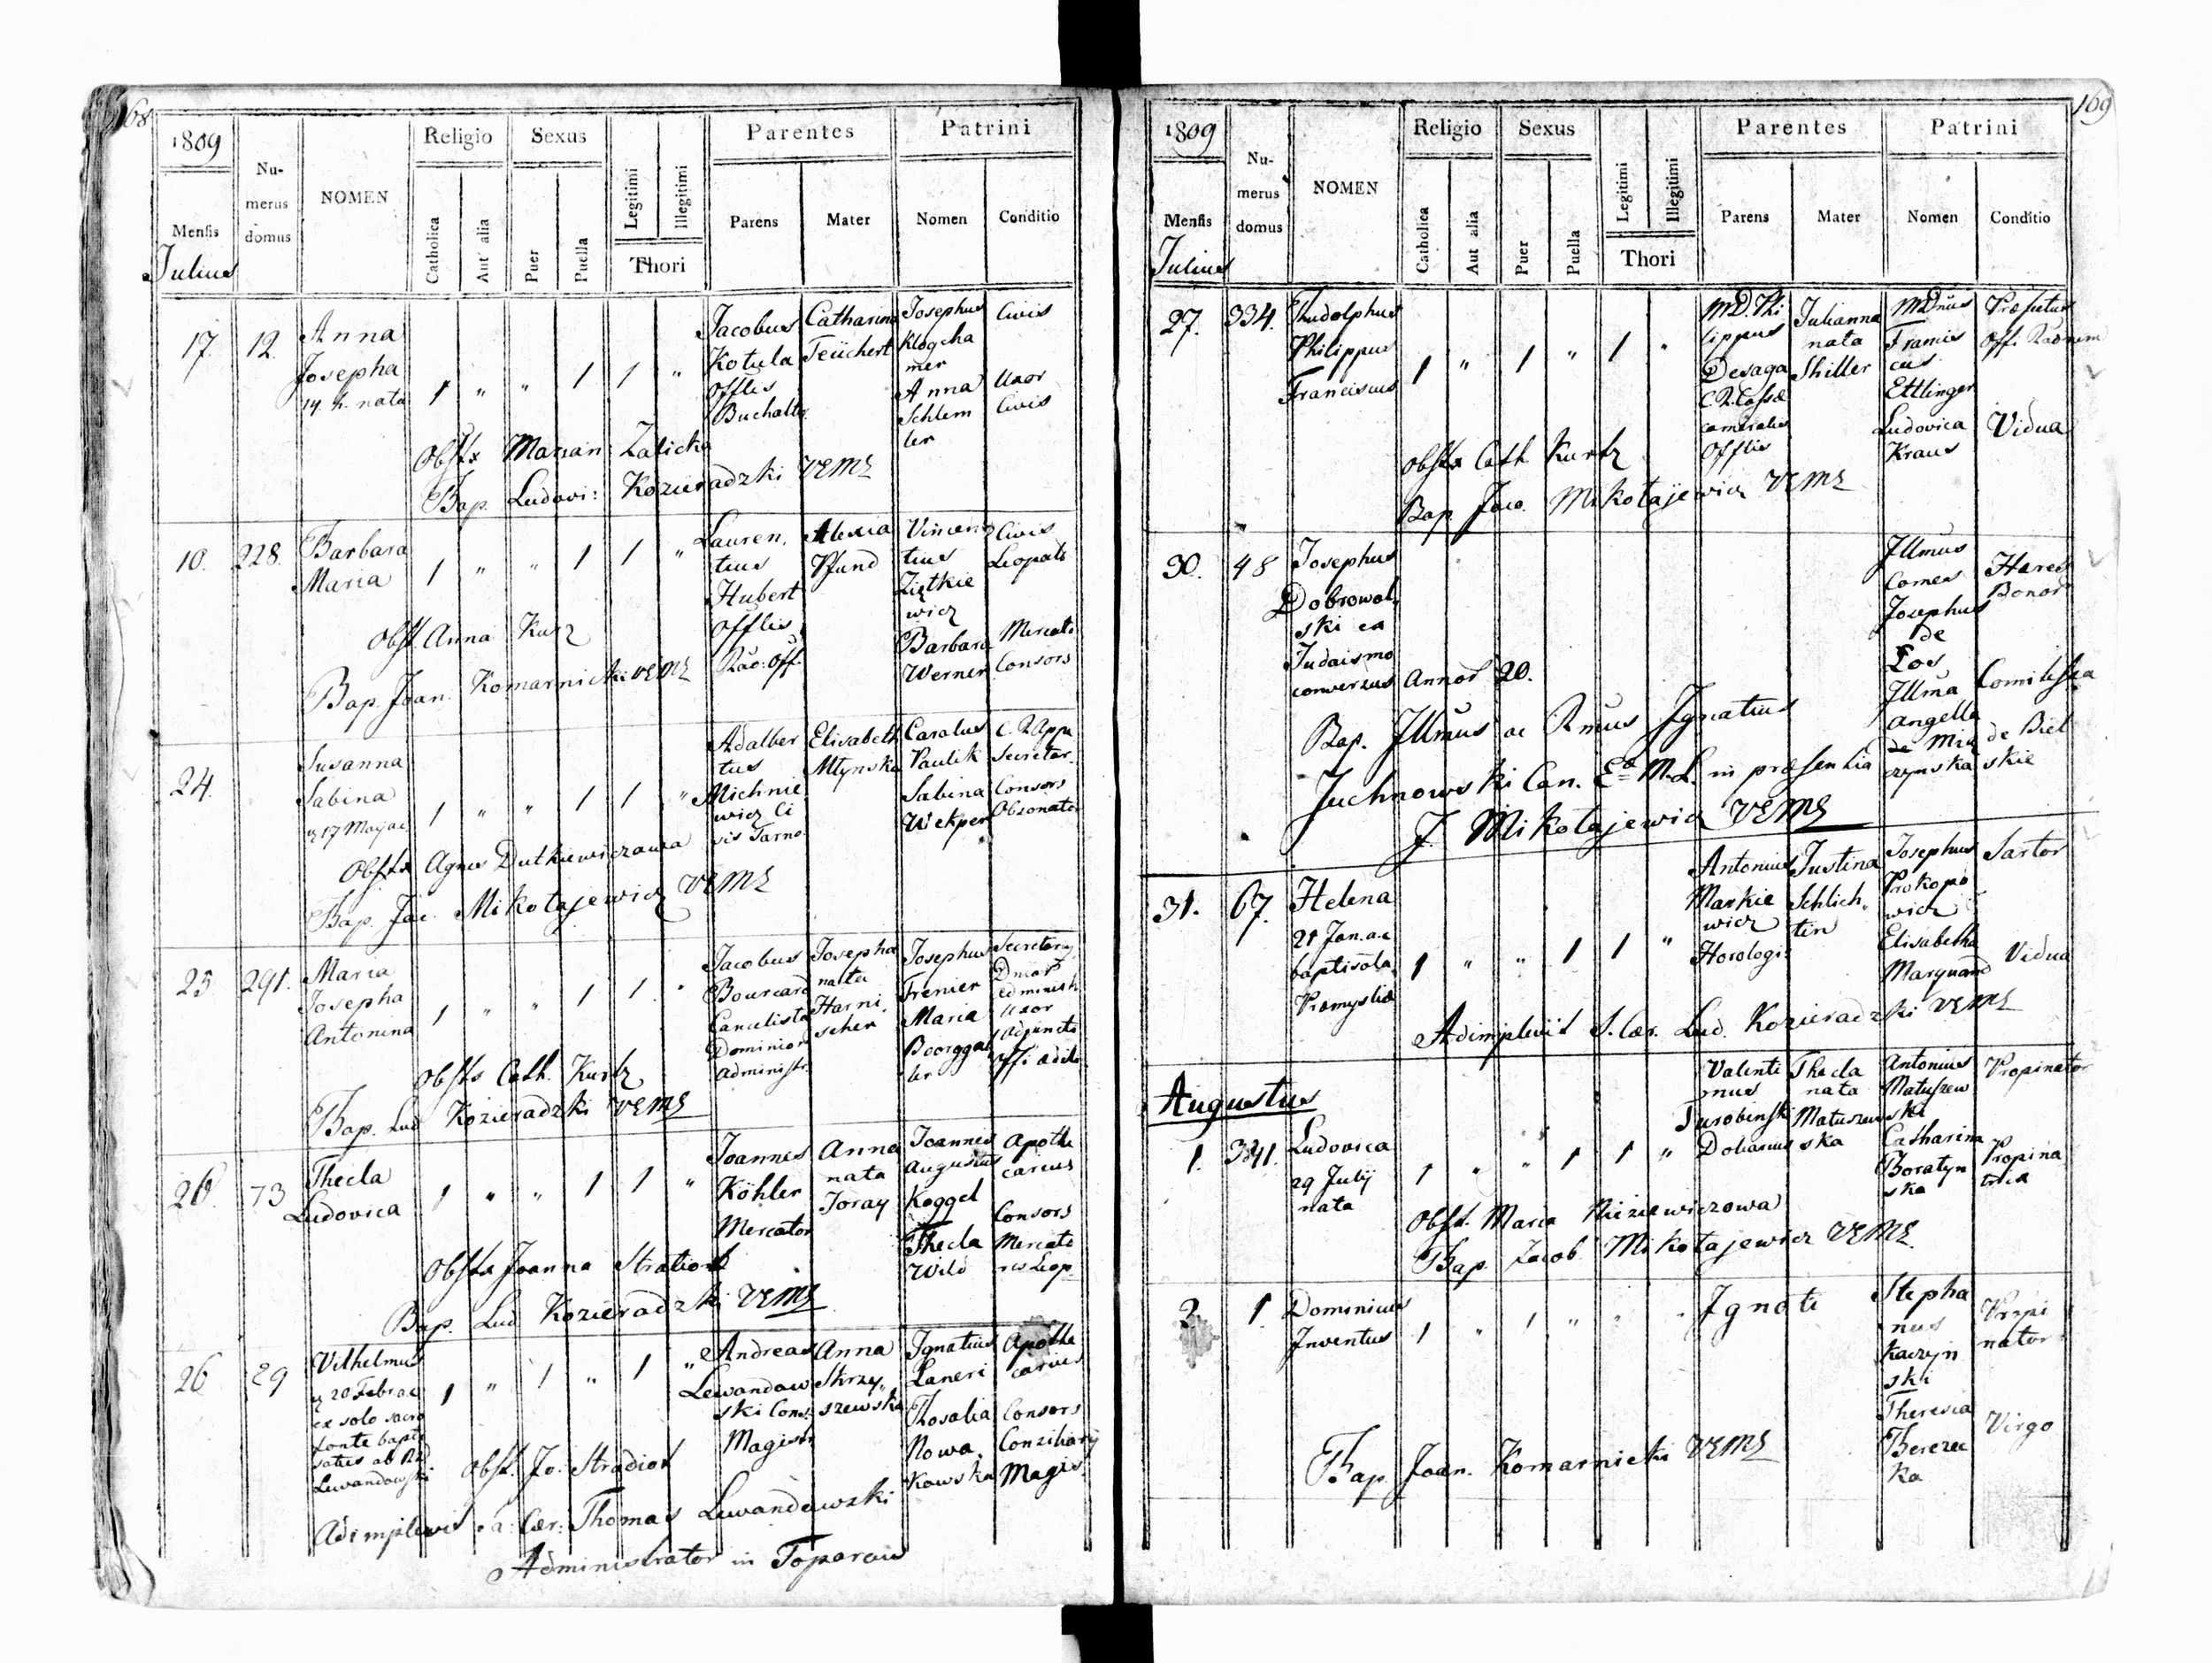 168
1809
Mensis
Julius
Nu-
merus
domus
NOMEN
Religio
Catholica
Aut alia
Sexus
Puer
Puella
Legitimi
Illegitimi
Thori
Parentes
Parens
Mater
Patrini
Nomen
Conditio
17. 12. Anna
Josepha
14 h. nata
1 " " 1 1 "
Jacobus
Kotula
Offlis
Buchalt
Catharina
Teüchert
Josephus
Klogcha
mer
Anna
Schlem
ler
Civis
Uxor
Civis
Obstx Marian: Zalicka
Bap. Ludovi: Kozieradzki VEML
228. Barbara
Maria
1 " " 1 1 "
Lauren,
tius
Hubert
Offlis
Rão: Off.
Alexia
Pfund
Vincen
tius
Ziętkie
wicz
Barbara
Werner
Civis
Leopols
Mercato
Consors
Obst. Anna Kurz
Bap. Joan. Komarnicki VEML
24. Susanna
Sabina
1 " " 1 1 "
Adalber
tus
Michnie
wicz Ci
vis Tarno
Elisabeth
Młynska
Carolus
Paulik
Sabina
Wekper
C. R. App
Secretar.
Consors
Obsonato
Obstx Agnes Dutkiewiczowa
Bap. Jac. Mikołajewicz VEML
25 291. Maria
Josepha
Antonina
1 " " 1 1 "
Jacobus
Bourcard
Cancelista
Dominior
administr.
Josepha
nata
Harni
scher
Josephus
Frenier
Maria
Boorggat
ler
Secretary
Dnior
administ.
Uxor
Adjuncti
Offi ædile
Obstx Cath. Kurtz
Bap. Lud Kozieradzki VEML
26. 73 Thecla
Ludovica
1 " " 1 1 "
Joannes
Köhler
Mercator
Anna
nata
Toray
Joannes
Augustus
Koggel
Thecla
Wild
Apothe
carius
Consors
Mercato
ris Leop.
Obstx Joanna Stratiot
Bap. Lud Kozieradzki VEML
26 29 Vilhelmus
20 Febr a c
ex solo sacro
fonte bapti
satus ab
Lewandowski
1 " 1 " 1 "
Andreas
Lewandow
ski Cons:
Magistr
Anna
Strzy,
szewska
Ignatius
Laneri
Rosalia
Nowa,
kowska
Apothe
carius
Consors
Conziliarij
Magis.
Obst. Jo. Stradiot
Adimplevit s a: Cær: Thomas Lewandowski
Administrator in Toporow
169
1809
Mensis
Julius
Nu-
merus
domus
NOMEN
Religio
Catholica
Aut alia
Sexus
Puer
Puella
Legitimi
Illegitimi
Thori
Parentes
Parens
Mater
Patrini
Nomen
Conditio
27. 334. Rudolphus
Philippus
Franciscus
1 " 1 " 1 "
MD. Phi
lippus
Desaga
C. R. Cassæ
cameralis
Offlis
Julianna
nata
Shiller
MDnus
Francis
cus
Ettlinger
Ludovica
Kraus
Præfectus
Offi Raonum
Vidua
Obstx Cath. Kurtz
Bap. Jaco. Mikołajewicz VEML
30. 48 Josephus
Dobrowol,
ski ex
Judaismo
converzus Annor 20.
Illmus
Comes
Josephus
de
Łos
Illma
Angella
de Mią
czynska
Hæres
Bonor
Comitissa
de Biel
skie
Bap. Illmus ac Rmus Ignatius
Juchnowski Can. Eæ M.L. in præsentia
J. Mikołajewicz VEML
31. 67. Helena
21 Jan. a.c
baptisata
Præmysliæ
1 " " 1 1 "
Antonius
Markie
wicz
Horologi:
Justina
Schlich,
tin
Josephus
Prokopo
wicz
Elisabetha
Marquard
Sartor
Vidua
Adimplevit S. Cær. Lud. Kozieradzki VEML
Augustus
1. 341. Ludovica
29 Julÿ
nata
1 " " 1 1 "
Valenti
nus
Turobinski
Doliarius
Thecla
nata
Matuszew
ska
Antonius
Matuszew
ski
Catharina
Boratyn
ska
Propinator
Propina
trix
Obst. Maria Niziewiczowa
Bap. Jacob Mikołajewicz VEML
2. 1. Dominicus
Inventus
1 " 1 " " "
Ignoti
Stepha
nus
Kaczyn
ski
Theresia
Berezec
ka
Propi
nator
Virgo
Bap. Joan. Komarnicki VEML